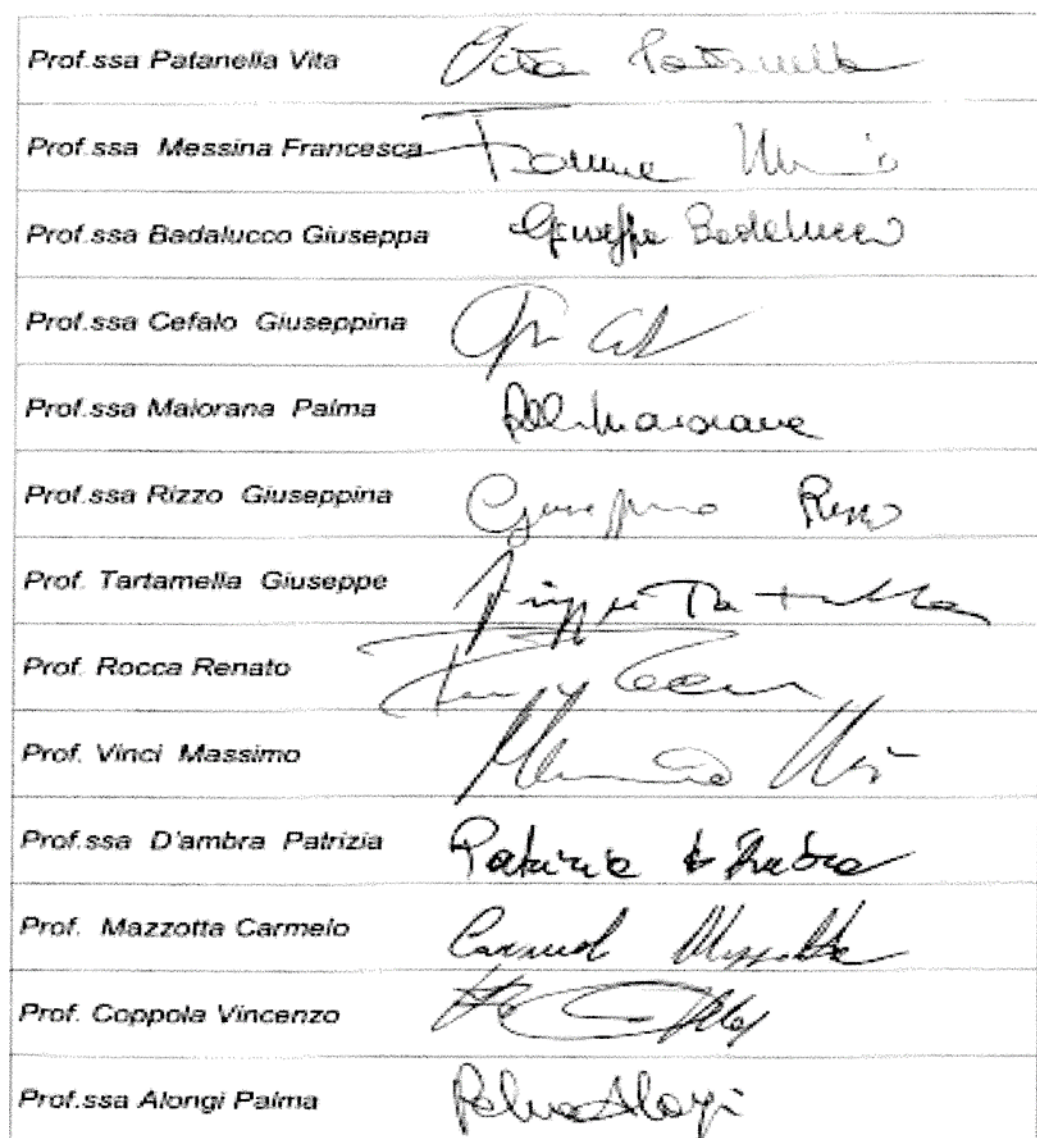 Prof.ssa Patanella Vita Vita Patanella
Prof.ssa Messina Francesca
Prof.ssa Badalucco Giuseppa Giuseppa Badalucco
Prof.ssa Cefalo Giuseppina
Prof.ssa Maiorana Palma Maiorana
Prof.ssa Rizzo Giuseppina Giuseppina Rizzo
Prof. Tartamella Giuseppe
Prof. Rocca Renato
Prof. Vinci Massimo
Prof.ssa D'ambra Patrizia Patrizia D'Ambra
Prof. Mazzotta Carmelo Carmelo Mazzotta
Prof. Coppola Vincenzo
Prof.ssa Alongi Palma Palma Alongi